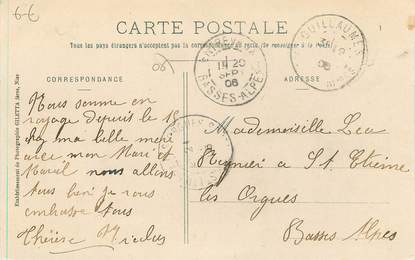 6-6
CARTE POSTALE
Tous les pays étrangers n'acceptent pas la correspondance au recto. (Se renseigner à la poste).
CORRESPONDANCE
ADRESSE
06
ENTREVAUX
20
SEPT
06
BASSES-ALPES
GUILLAUMES
06
Etablissement de Photographie GILETTA frères, Nice
Nous somme en
voyage depuis le 15
chez ma belle mère
avec mon Mari et
nous allons
tous bien je vous
embrasse tous
Thérèse Nicolas
Mademoiselle Lea
à St Etienne
les Orgues
Basses Alpes